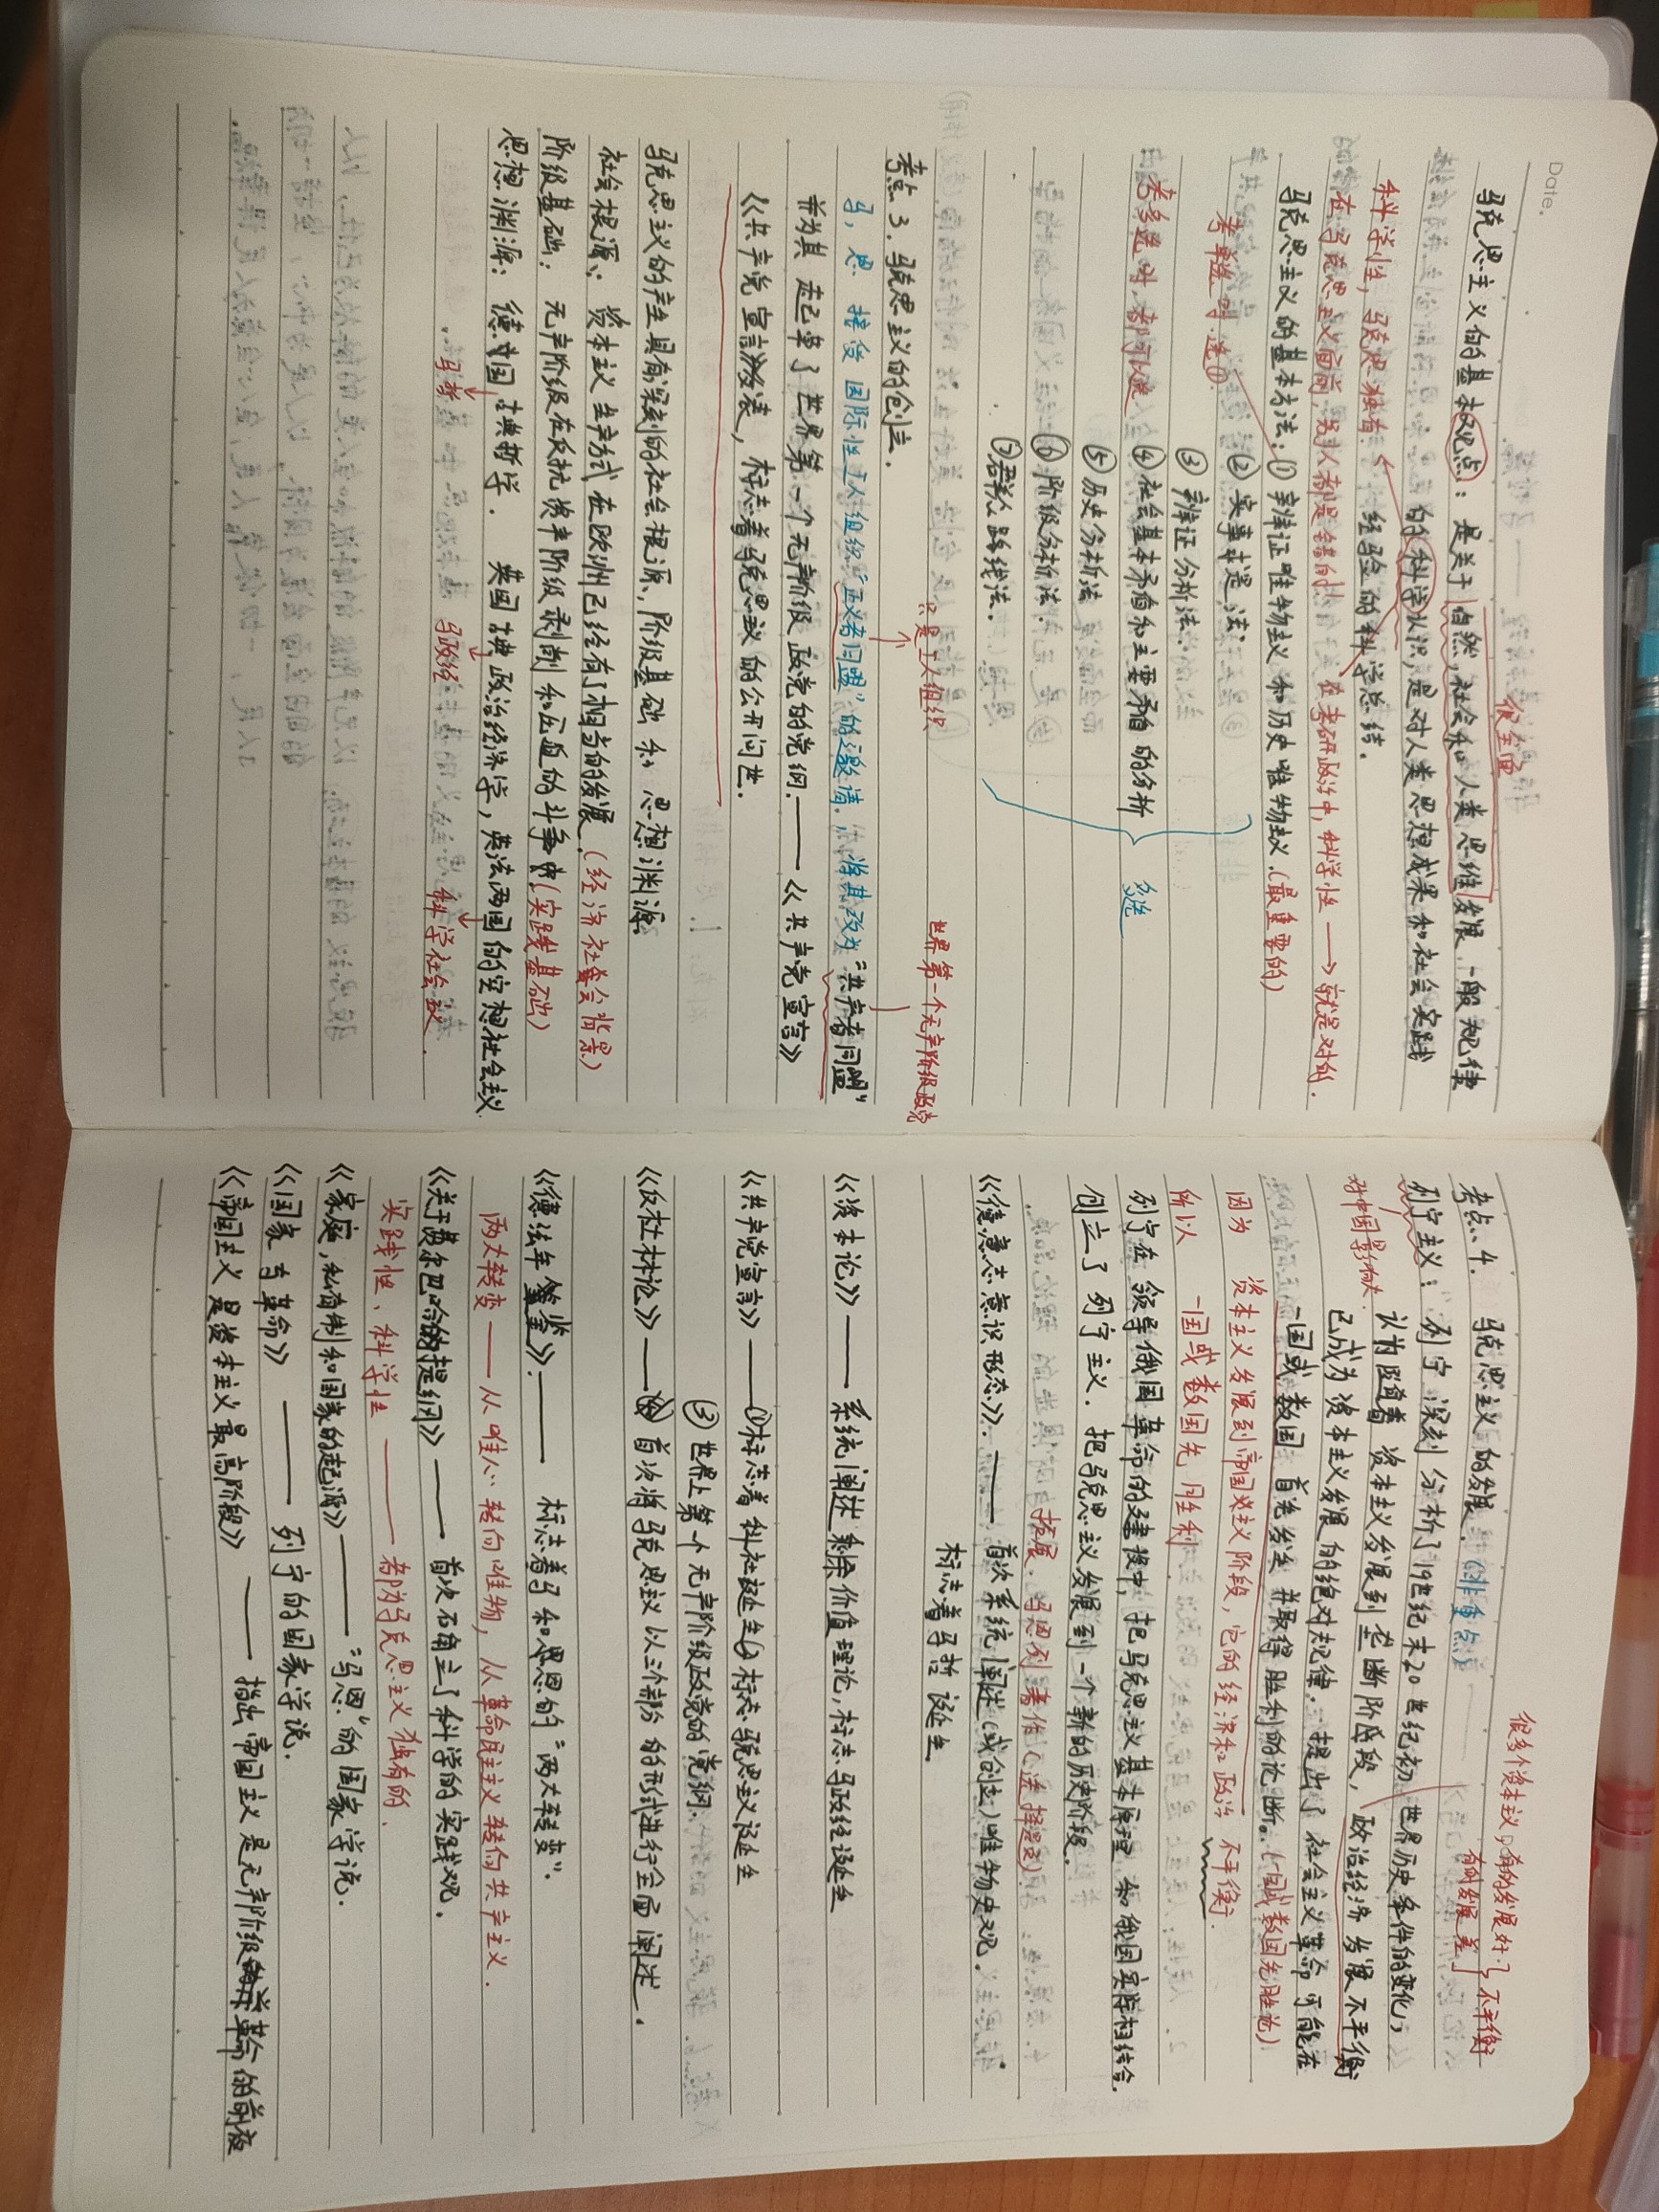 Date.
很全面
马克思主义的基本观点：是关于自然，社会和人类思维发展一般规律
的科学认识，是对人类思想成果和社会实践
经验的科学总结.
科学性，马克思独有
在马克思主义面前别人都是错的 在考研政治中，科学性→就是对的.
马克思主义的基本方法：① 辩证唯物主义和历史唯物主义.(最重要的)
考单选时.选①.
② 实事求是法.
③ 辩证分析法.
考多选时，都可选
④ 社会基本矛盾和主要矛盾的分析
⑤ 历史分析法
⑥ 阶级分析法.
⑦ 群众路线法.
多选
考点3. 马克思主义的创立.
只是工人组织
世界第一个无产阶级政党
马，恩 接受国际性工人组织“正义者同盟”的邀请，将其改为“共产者同盟”
并为其起草了世界第一个无产阶级政党的党纲.——《共产党宣言》
《共产党宣言》发表，标志着马克思主义的公开问世.
马克思主义的产生具有深刻的社会根源，阶级基础和思想渊源
社会根源：资本主义生产方式在欧州已经有了相当的发展.(经济社会背景)
阶级基础：无产阶级在反抗资产阶级剥削和压迫的斗争中(实践基础)
思想渊源：德国古典哲学. 英国古典政治经济学，英法两国的空想社会主义.
马哲
马政经
科学社会主义.
很多个资本主义，有的发展好 有的发展差 不平衡
考点4. 马克思主义的发展.(非重点)
列宁主义：列宁深刻分析了19世纪末20世纪初世界历史条件的变化，
对中国影响大.
认为随着资本主义发展到垄断阶段，政治经济发展不平衡
已成为资本主义发展的绝对规律.提出了社会主义革命可能在
一国或数国首先发生并取得胜利的论断。(一国或数国先胜论)
因为 资本主义发展到帝国主义阶段，它的经济和政治不平衡.
所以 一国或数国先胜利
列宁在领导俄国革命的建设中，把马克思主义基本原理和俄国实际相结合.
创立了列宁主义. 把马克思主义发展到一个新的历史阶段.
拓展.马恩列著作(选择题)
《德意志意识形态》.——首次系统阐述(或创立)唯物史观.
标志着马哲诞生
《资本论》——系统阐述剩余价值理论，标志马政经诞生
《共产党宣言》——①标志着科社诞生②标志马克思主义诞生
③世界上第一个无产阶级政党的党纲.
《反杜林论》——首次将马克思主义以三个部分的形式进行全面阐述.
《德法年鉴》.——标志着马和恩的“两大转变”.
两大转变——从唯心转向唯物，从革命民主主义转向共产主义.
《关于费尔巴哈的提纲》——首次确立了科学的实践观.
实践性、科学性——都为马克思主义独有的.
《家庭，私有制和国家的起源》——“马恩”的国家学说.
《国家与革命》——列宁的国家学说.
《帝国主义是资本主义最高阶段》——指出帝国主义是无产阶级革命的前夜